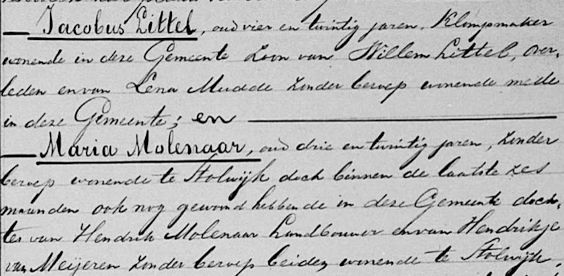 Jacobus Littel, oud vier en twintig jaren, Klompmaker
wonende in deze Gemeente Zoon van Willem Littel, over-
leden en van Lena Mudde zonder beroep wonende mede
in deze Gemeente; en
Maria Molenaar, oud drie en twintig jaren, zonder
beroep wonende te Stolwijk doch binnen de laatste zes
maanden ook nog gewoond hebbende in deze Gemeente doch-
ter van Hendrik Molenaar Landbouwer en van Hendrikje
van Meijeren zonder beroep beiden wonende te Stolwijk.